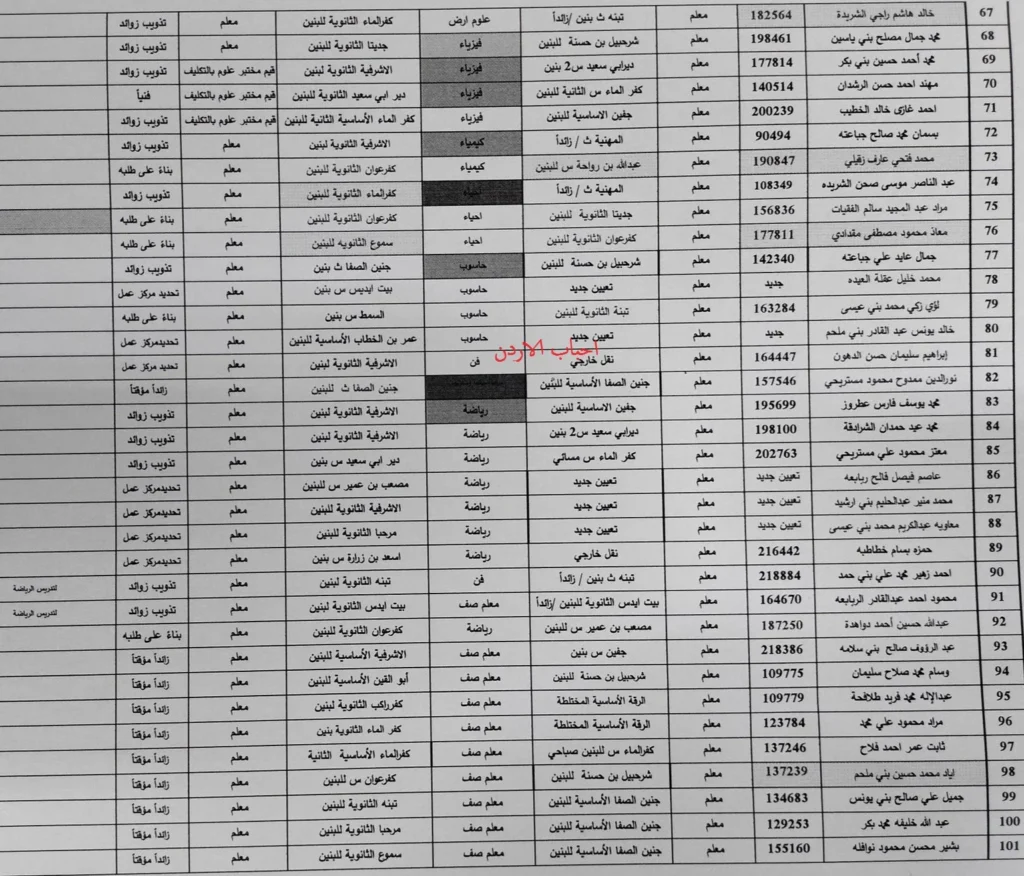 67 خالد هاشم راجي الشريدة 182564 معلم تبنه ث بنين /زائداً علوم ارض كفرالماء الثانوية للبنين معلم تذويب زوائد
68 محمد جمال مصلح بني ياسين 198461 معلم شرحبيل بن حسنة للبنين فيزياء جديتا الثانوية للبنين معلم تذويب زوائد
69 محمد أحمد حسين بني بكر 177814 معلم ديرابي سعيد س2 بنين فيزياء الاشرفية الثانوية لبنين قيم مختبر علوم بالتكليف تذويب زوائد
70 مهند احمد حسن الرشدان 140514 معلم كفر الماء س الثانية للبنين فيزياء دير ابي سعيد الثانوية للبنين قيم مختبر علوم بالتكليف فنياً
71 احمد غازي خالد الخطيب 200239 معلم جفين الاساسية للبنين فيزياء كفر الماء الأساسية الثانية للبنين قيم مختبر علوم بالتكليف تذويب زوائد
72 بسمان محمد صالح جباعته 90494 معلم المهنية ث / زائداً كيمياء الاشرفية الثانوية لبنين معلم تذويب زوائد
73 محمد فتحي عارف زقيلي 190847 معلم عبدالله بن رواحة س للبنين كيمياء كفرعوان الثانوية للبنين معلم بناءً على طلبه
74 عبد الناصر موسى صحن الشريده 108349 معلم المهنية ث / زائداً كفرالماء الثانوية للبنين معلم تذويب زوائد
75 مراد عبد المجيد سالم الفقيات 156836 معلم جديتا الثانوية للبنين احياء كفرعوان الثانوية للبنين معلم بناءً على طلبه
76 معاذ محمود مصطفى مقدادي 177811 معلم كفرعوان الثانوية للبنين احياء سموع الثانويه للبنين معلم بناءً على طلبه
77 جمال عايد علي جباعته 142340 معلم شرحبيل بن حسنة للبنين حاسوب جنين الصفا ث بنين معلم تذويب زوائد
78 محمد خليل عقلة العبده جديد معلم تعيين جديد حاسوب بيت ايديس س بنين معلم تحديد مركز عمل
79 لؤي زكي محمد بني عيسى 163284 معلم تبنة الثانوية للبنين حاسوب السمط س بنين معلم بناءً على طلبه
80 خالد يونس عبد القادر بني ملحم جديد معلم تعيين جديد حاسوب عمر بن الخطاب الأساسية للبنين معلم تحديدمركز عمل
احباب الاردن
81 إبراهيم سليمان حسن الدهون 164447 معلم نقل خارجي فن الاشرفية الثانوية لبنين معلم تحديد مركز عمل
82 نورالدين ممدوح محمود مستريحي 157546 معلم جنين الصفا الأساسية للبنين جنين الصفا ث للبنين معلم زائداً مؤقتاً
83 محمد يوسف فارس عطروز 195699 معلم جفين الاساسية للبنين رياضة الاشرفية الثانوية لبنين معلم تذويب زوائد
84 محمد عيد حمدان الشرادقة 198100 معلم ديرابي سعيد س2 بنين رياضة الاشرفية الثانوية لبنين معلم تذويب زوائد
85 معتز محمود علي مستريحي 202763 معلم كفر الماء س مسائي رياضة دير ابي سعيد س بنين معلم تذويب زوائد
86 عاصم فيصل فالح ربابعه تعيين جديد معلم تعيين جديد رياضة مصعب بن عمير س للبنين معلم تحديدمركز عمل
87 محمد منير عبدالحليم بني ارشيد تعيين جديد معلم تعيين جديد رياضة الاشرفية الثانوية لبنين معلم تحديدمركز عمل
88 معاويه عبدالكريم محمد بني عيسى تعيين جديد معلم تعيين جديد رياضة مرحبا الثانوية للبنين معلم تحديدمركز عمل
89 حمزه بسام خطاطبه 216442 معلم نقل خارجي رياضة اسعد بن زرارة س بنين معلم تحديدمركز عمل
90 احمد زهير محمد علي بني حمد 218884 معلم تبنه ث بنين / زائداً فن تبنه الثانوية لبنين معلم تذويب زوائد لتدريس الرياضة
91 محمود احمد عبدالقادر الربابعه 164670 معلم بيت ايدس الثانوية للبنين /زائداً معلم صف بيت ايدس الثانوية لبنين معلم تذويب زوائد لتدريس الرياضة
92 عبدالله حسين أحمد دواهدة 187250 معلم مصعب بن عمير س للبنين رياضة كفرعوان الثانوية للبنين معلم بناءً على طلبه
93 عبد الرؤوف صالح بني سلامه 218386 معلم جفين س بنين معلم صف الاشرفية الأساسية للبنين معلم زائداً مؤقتاً
94 وسام محمد صلاح سليمان 109775 معلم شرحبيل بن حسنة للبنين معلم صف أبو القين الأساسية للبنين معلم زائداً مؤقتاً
95 عبدالإله محمد فريد طلافحة 109779 معلم الرقة الأساسية المختلطة معلم صف كفرراكب الثانوية لبنين معلم زائداً مؤقتاً
96 مراد محمود علي محمد 123784 معلم الرقة الأساسية المختلطة معلم صف كفر الماء الثانوية بنين معلم زائداً مؤقتاً
97 ثابت عمر احمد فلاح 137246 معلم كفرالماء س للبنين صباحي معلم صف كفرالماء الأساسية الثانية معلم زائداً مؤقتاً
98 اياد محمد حسين بني ملحم 137239 معلم شرحبيل بن حسنة للبنين معلم صف كفرعوان س للبنين معلم زائداً مؤقتاً
99 جميل علي صالح بني يونس 134683 معلم جنين الصفا الأساسية للبنين معلم صف تبنه الثانوية للبنين معلم زائداً مؤقتاً
100 عبد الله خليفه محمد بكر 129253 معلم جنين الصفا الأساسية للبنين معلم صف مرحبا الثانوية للبنين معلم زائداً مؤقتاً
101 بشير محسن محمود نوافله 155160 معلم جنين الصفا الأساسية للبنين معلم صف سموع الثانوية للبنين معلم زائداً مؤقتاً